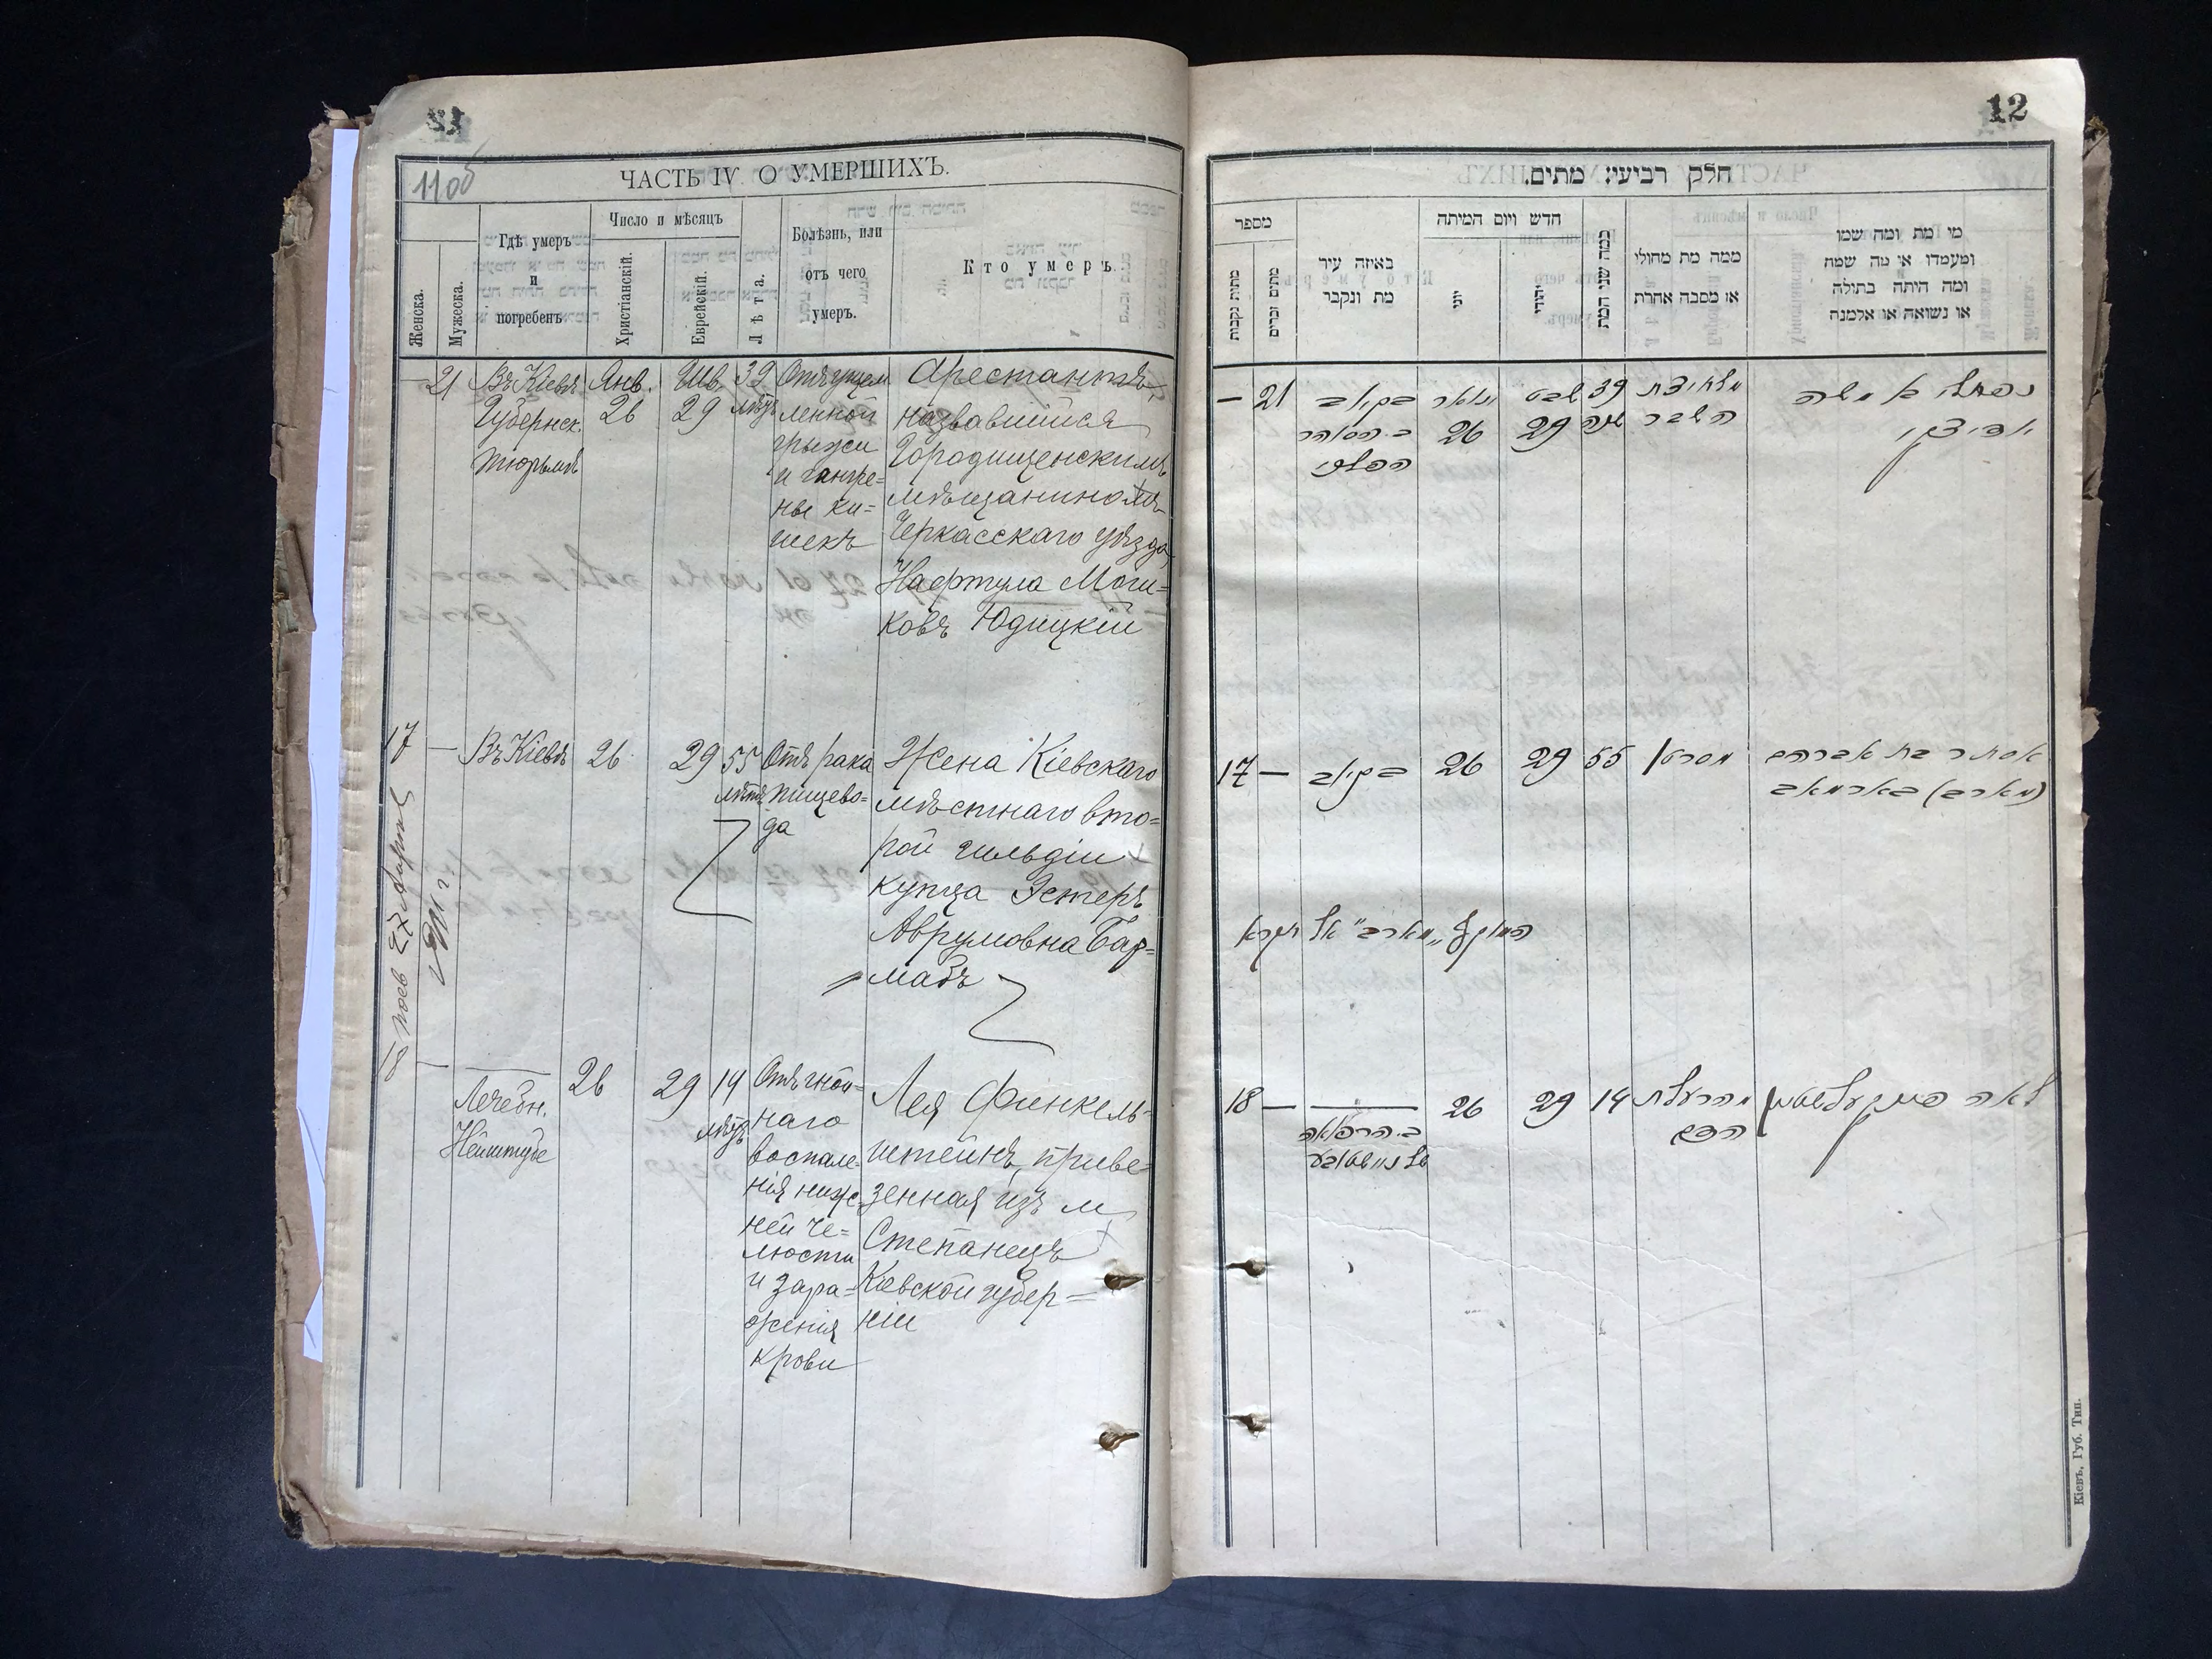 11об
ЧАСТЬ IV О УМЕРШИХЪ.
Женска.
Мужеска.
Гдѣ умеръ
и
погребенъ
Число и мѣсяцъ
Христіанскій.
Еврейскій.
Лѣта.
Болѣзнь, или
отъ чего
умеръ.
Кто умеръ.
— 21
Въ Кіевѣ
Губернск.
тюрьмѣ
Янв.
26
Шв.
29
39
лѣтъ
Отъ ущем
ленной
грыжи
и гангре=
ны ки=
шекъ
Арестантъ,
назвавшійся
Городищенскимъ
мѣщаниномъ
Черкасскаго уѣзда,
Нафтула Мош=
ковъ Юдицкій
17 —
Въ Кіевѣ
26
29
55
лѣтъ
Отъ рака
пищево=
да
Жена Кіевскаго
мѣстнаго вто=
рой гильдіи
купца Эстеръ
Аврумовна Бар=
мабъ
—
Лечебн.
Нейштубе
26
29
14
лѣтъ
Отъ гной=
наго
воспале-
нія ниж-
ней че=
люсти
и зара=
женія
крови
Лея Финкель-
штейнъ, приве=
зенная изъ м
Степанецъ
Кіевской губер=
ніи
12
חלק רביעי: מתים.
מספר
מתות נקבות
מתים זכרים
באיזה עיר
מת ונקבר
חדש ויום המיתה
יוני
יהודי
כמה שני המת
ממה מת מחולי
או מסבה אחרת
מי מת ומה שמו
ומעמדו או מה שמה
ומה היתה בתולה
או נשואה או אלמנה
— 21
בקיוב
26
שבט
29
39
שנה
השבר
נפתלי ב משה
17 —
בקיוב
26
29
55
מסרטן
אסתר בת אברהם
(מארב) בארמאב
18 —
26
29
14
מהרעלת
הדם
לאה פינקעלשטיין
Кіевъ, Губ. Тип.